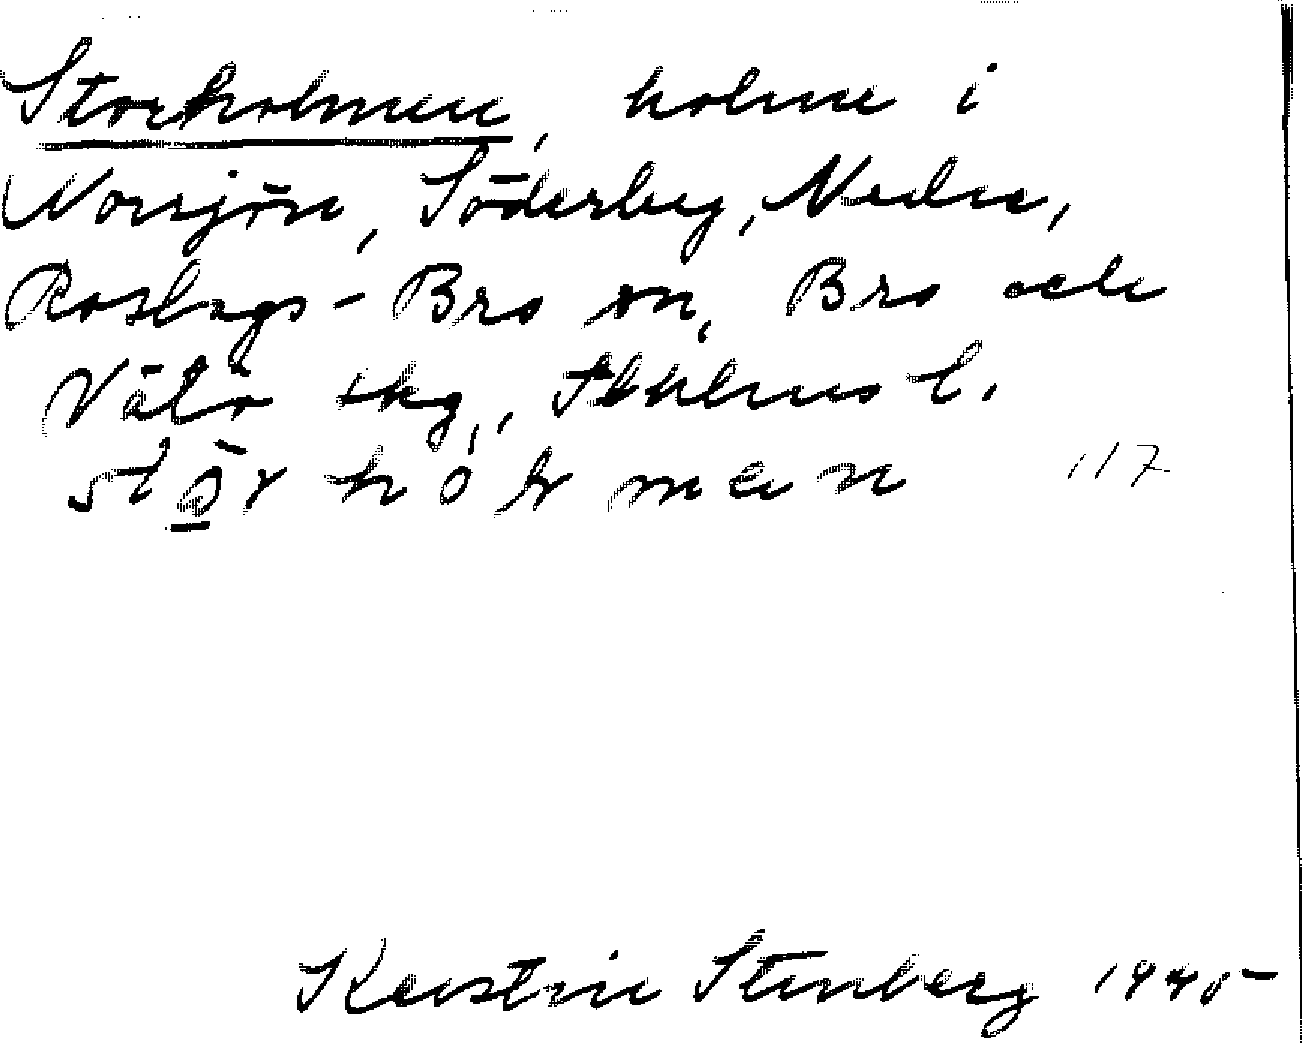 Storholmen, holme i
Norrsjön, Söderby, Nedre,
Roslags-Bro sn, Bro och
Vätö skg, Sthlms l.
stör hòlmen 117
Kerstin Stenberg 1945